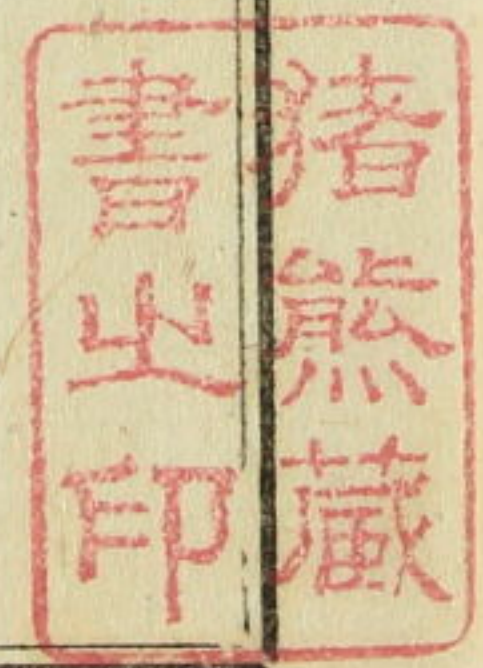 猪熊藏
書之印